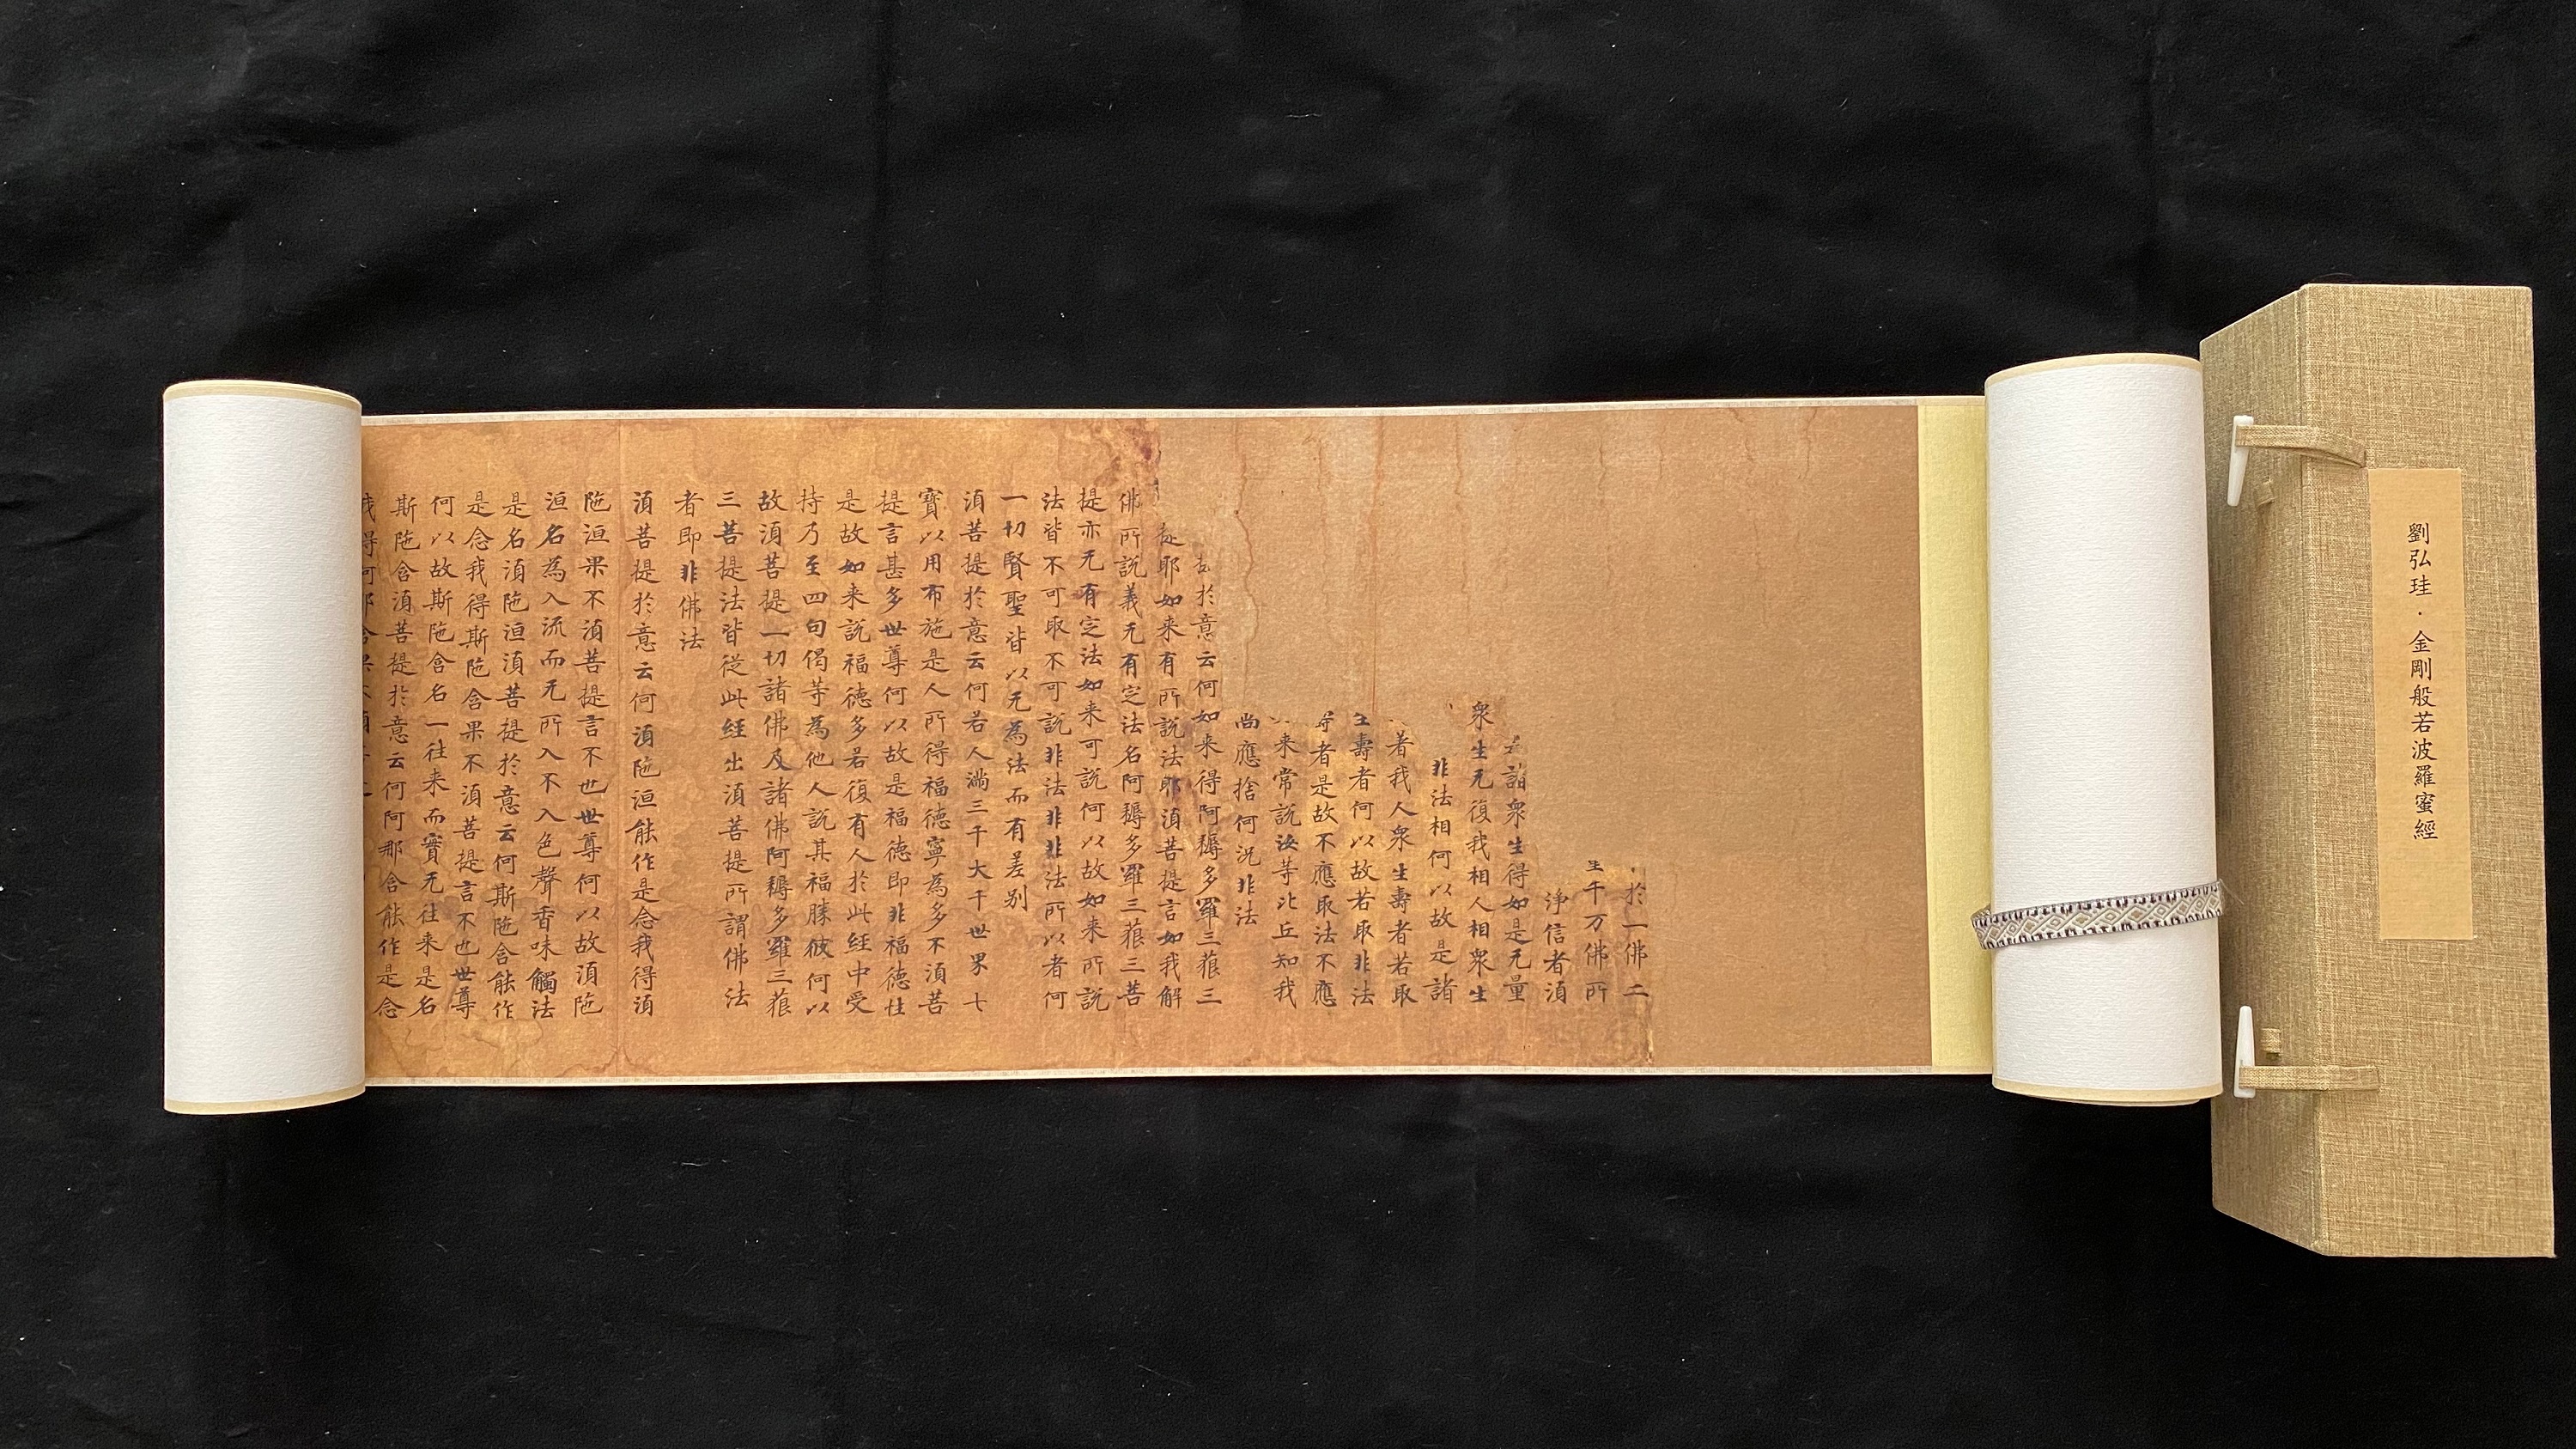 劉弘珪·金剛般若波羅蜜經
於一佛二
生千万佛所
淨信者湏
諸衆生得如是无量
衆生无復我相人相衆生
非法相何以故是諸
著我人衆生壽者若取
壽者何以故若取非法
者是故不應取法不應
来常說汝等比丘知我
尚應捨何況非法
於意云何如来得阿耨多羅三藐三
耶如来有所說法耶湏菩提言如我解
佛所說義无有定法名阿耨多羅三藐三菩
提亦无有定法如来可說何以故如来所說
法皆不可取不可說非法非非法所以者何
一切賢聖皆以无為法而有差别
湏菩提於意云何若人滿三千大千世界七
寶以用布施是人所得福德寧為多不湏菩
提言甚多世尊何以故是福德即非福德性
是故如来說福德多若復有人於此経中受
持乃至四句偈等為他人說其福勝彼何以
故湏菩提一切諸佛及諸佛阿耨多羅三藐
三菩提法皆從此経出湏菩提所謂佛法
者即非佛法
湏菩提於意云何湏陁洹能作是念我得湏
陁洹果不湏菩提言不也世尊何以故湏陁
洹名為入流而无所入不入色聲香味觸法
是名湏陁洹湏菩提於意云何斯陁含能作
是念我得斯陁含果不湏菩提言不也世尊
何以故斯陁含名一往来而實无往来是名
斯陁含湏菩提於意云何阿那含能作是念